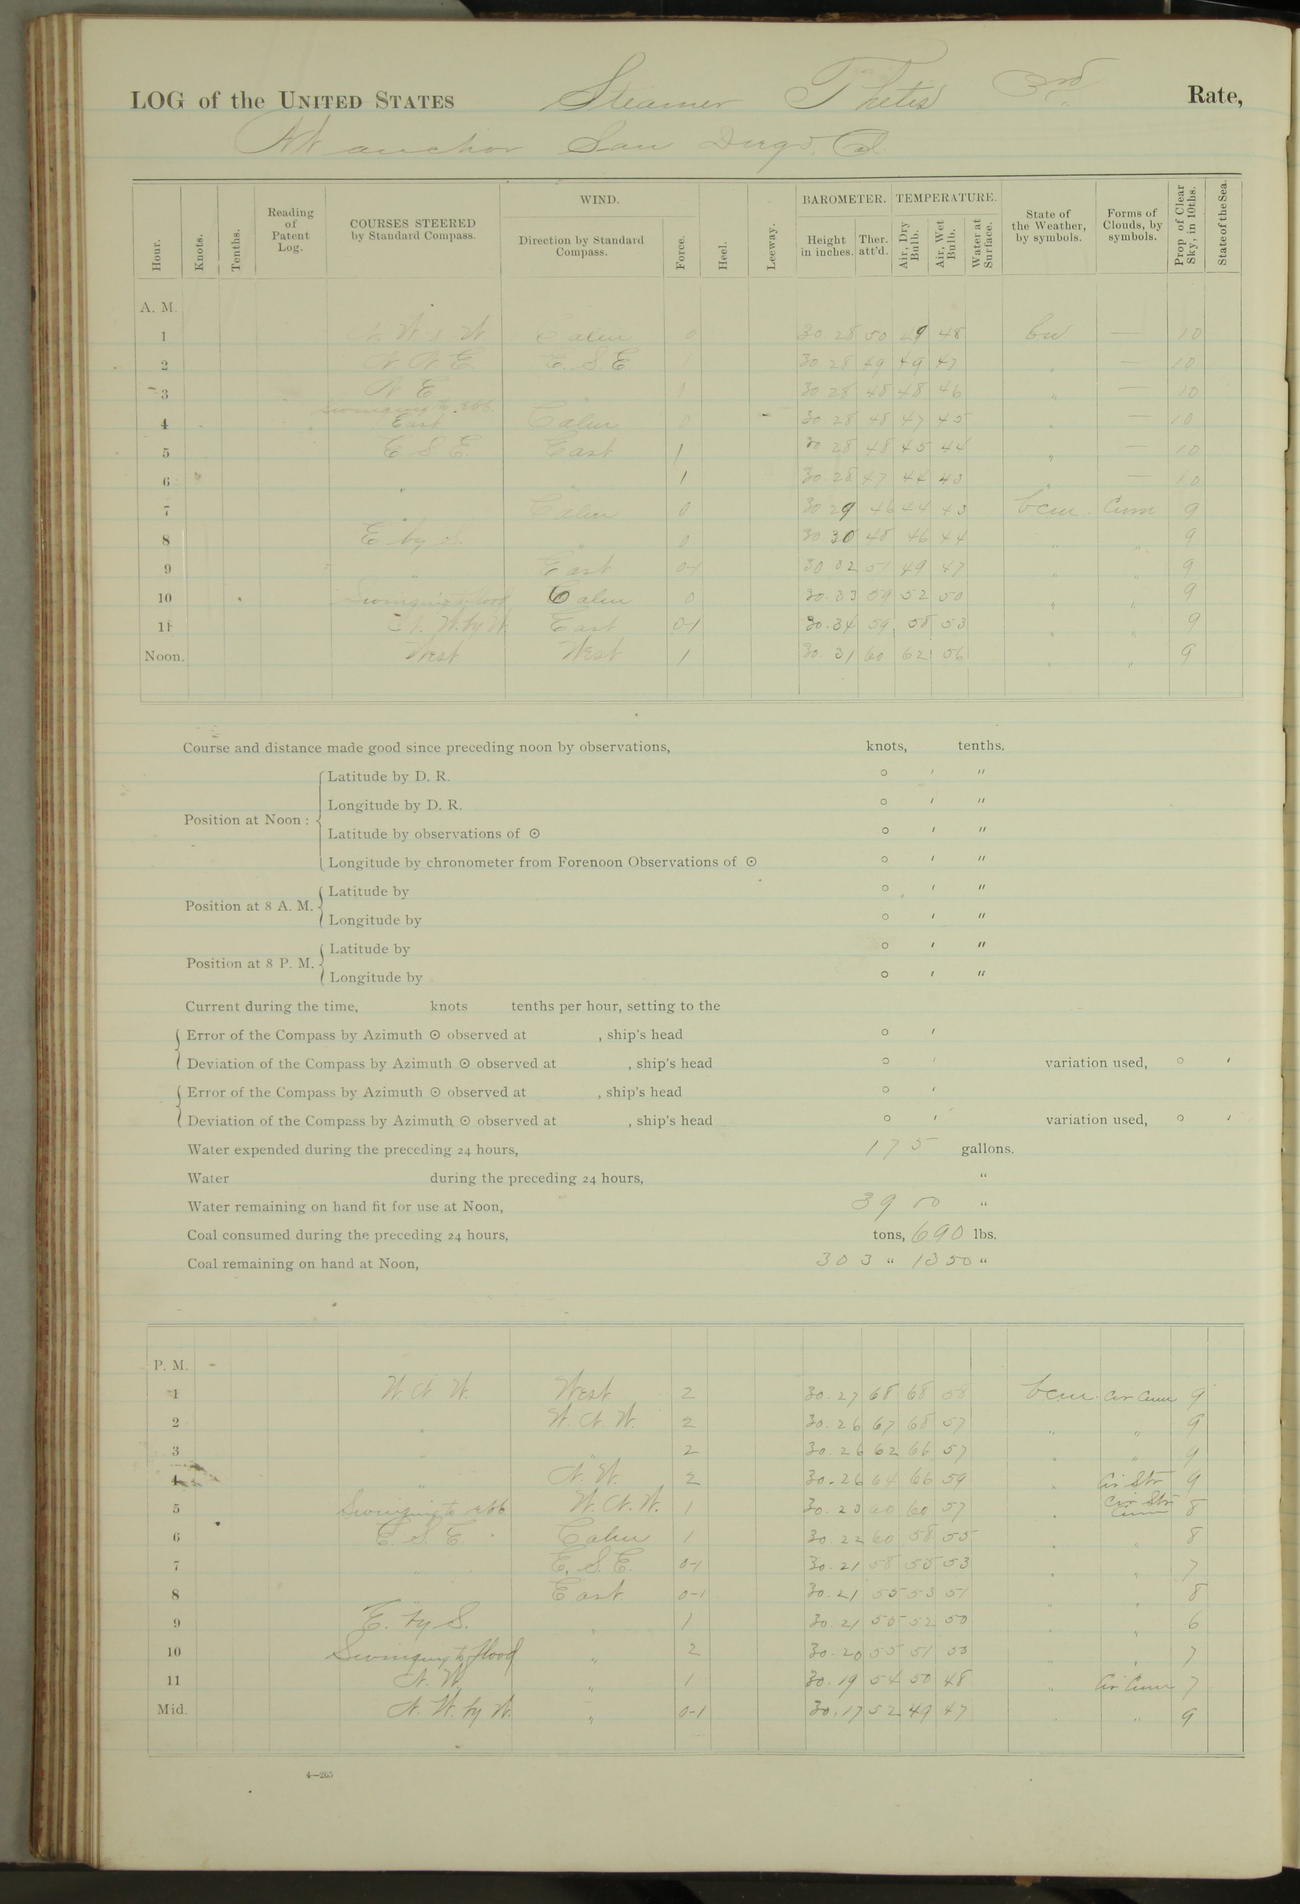 LOG of the UNITED STATES Steamer Thetis 3rd Rate,
At anchor San Diego, Cal.
Hour. Knots. Tenths. Reading of Patent Log. COURSES STEERED by Standard Compass. WIND. Direction by Standard Compass. Force. Heel. Leeway. BAROMETER. Height in inches. Ther. att'd. TEMPERATURE. Air, Dry Bulb. Air, Wet Bulb. Water at Surface. State of the Weather, by symbols. Forms of Clouds, by symbols. Prop. of Clear Sky, in 10ths. State of the Sea.
A. M.
1 Calm 0 30.28 50 49 48 — 10
2 N N E. E. S. E 1 30 28 49 49 47 " — 10
3 N E " 1 30 28 48 48 46 " — 10
Swinging to ebb
4 East Calm 0 30 28 48 47 45 " — 10
5 E S E. East 1 30 28 48 45 44 " — 10
6 " " 1 30.28 47 44 43 " — 10
7 " Calm 0 30 29 46 44 43 bcm. Cum 9
8 E by S. " 0 30 30 48 46 44 " " 9
9 " East 0-1 30 32 51 49 47 " " 9
10 Swinging to flood Calm 0 30.33 59 52 50 " " 9
11 N. W. by W. East 0-1 30.34 59 58 53 " " 9
Noon. West West 1 30.31 60 62 56 " " 9
Course and distance made good since preceding noon by observations, knots, tenths.
Position at Noon:
Latitude by D. R. ° ′ ″
Longitude by D. R. ° ′ ″
Latitude by observations of ☉ ° ′ ″
Longitude by chronometer from Forenoon Observations of ☉ ° ′ ″
Position at 8 A. M. Latitude by ° ′ ″
Longitude by ° ′ ″
Position at 8 P. M. Latitude by ° ′ ″
Longitude by ° ′ ″
Current during the time, knots tenths per hour, setting to the
Error of the Compass by Azimuth ☉ observed at , ship's head ° ′
Deviation of the Compass by Azimuth ☉ observed at , ship's head ° ′ variation used, ° ′
Error of the Compass by Azimuth ☉ observed at , ship's head ° ′
Deviation of the Compass by Azimuth ☉ observed at , ship's head ° ′ variation used, ° ′
Water expended during the preceding 24 hours, 175 gallons.
Water during the preceding 24 hours, "
Water remaining on hand fit for use at Noon, 3900 "
Coal consumed during the preceding 24 hours, tons, 690 lbs.
Coal remaining on hand at Noon, 303 " 1350 "
P. M.
1 W N W. West 2 30.27 68 68 58 bcm. Cir Cum 9
2 " W. N. W. 2 30.26 67 68 57 " " 9
3 " " 2 30.26 62 66 57 " " 9
4 " N. W. 2 30.26 64 66 59 " Cir Str 9
5 Swinging to ebb W. N. W. 1 30.23 60 60 57 " Cir Str Cum 8
6 E. S. E. Calm 1 30.22 60 58 55 " " 8
7 " E. S. E. 0-1 30.21 58 55 53 " " 7
8 " East 0-1 30.21 55 53 51 " " 8
9 E. by S. " 1 30.21 55 52 50 " " 6
10 Swinging to flood " 2 30.20 55 51 50 " " 7
11 N. W. " 1 30.19 54 50 48 " Cir Cum 7
Mid. N. W. by W. " 0-1 30.17 52 49 47 " " 9
4—265